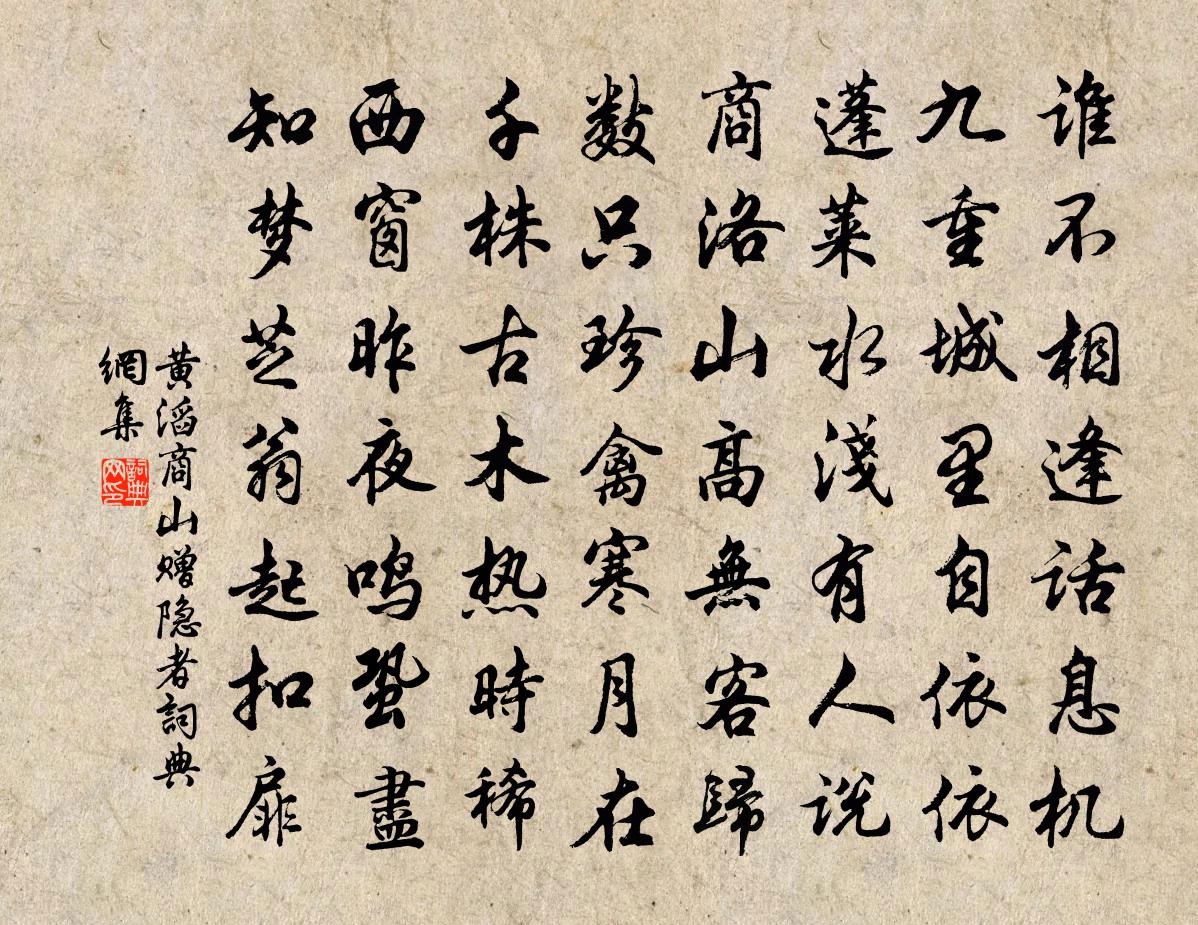 谁不相逢话息机
九重城里自依依
蓬莱水淺有人说
商洛山高無客歸
数只珍禽寒月在
千株古木热時稀
西窗昨夜鸣蛩盡
知梦芝翁起扣扉
黄滔商山赠隐者詞典
網集
詞典
网印